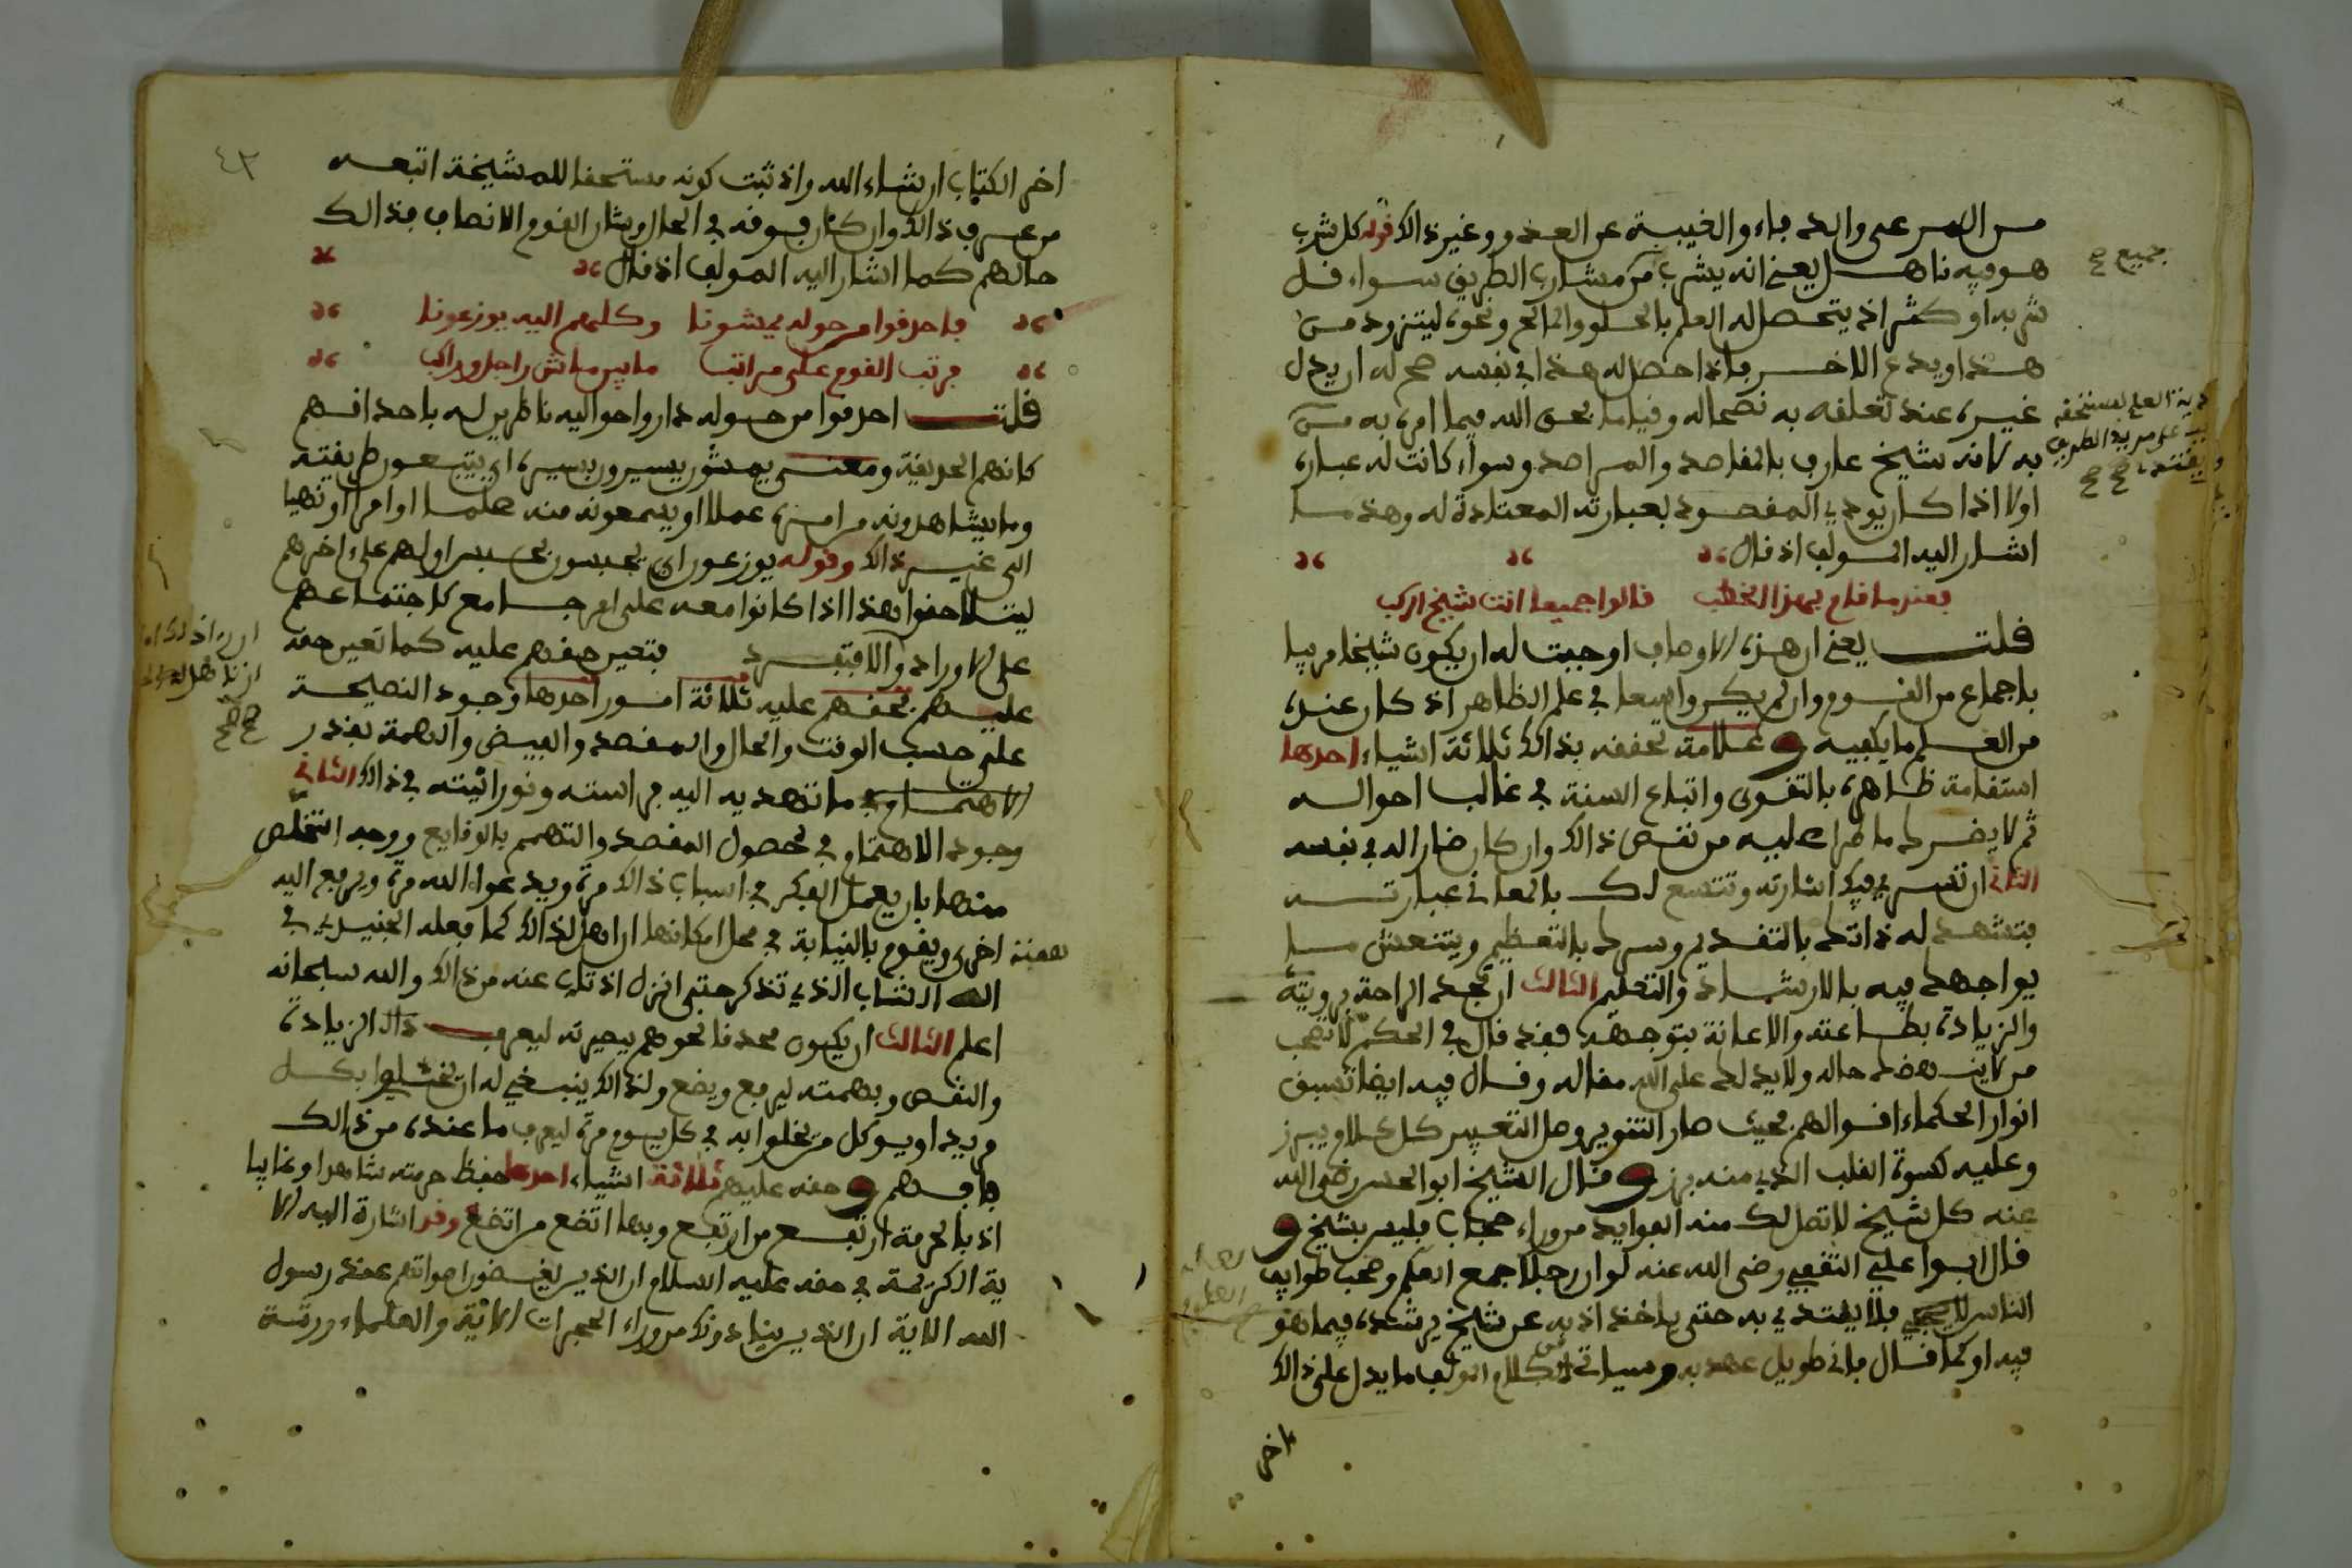 من الهر عى والدماء والغيبة عن العذو وغير ذالك قوله كل شرب
هو فيه ناهل يعني انه يشرب من مشارب الطريق سواء قل
شربه او كثر اذ يتحصل له العلم بالحلو والمالح ونحوه ليتزود من
هذا ويدع الاخر فاذا حصل له هذا في نفسه صح له ان يدل
غيره عند تعلقه به نصحا له وقياما بحق الله فيما امره به من
به لانه شيخ عارف بالمقاصد والمراصد وسواء كانت له عبارة
اولا اذا كان يودي المقصود بعبارته المعتادة له وهذه ما
اشار اليه المولف اذ قال
فعندما قام بهذا الخطب قالوا جميعا انت شيخ اركب
قلت يعني ان هذه الاوصاف اوجبت له ان يكون شيخا مربيا
باجماع من القوم وان لم يكن واسعا في علم الظاهر اذ كان عنده
من العلم ما يكفيه وعلامة تحققه بذالك ثلاثة اشياء احدها
استقامة ظاهره بالتقوى واتباع السنة في غالب احواله
ثم لا يضرك ما طرا عليه من نقص ذالك وان كان ضارا له في نفسه
الثاني ان تسري فيك اشارته وتتسع لك بالمعاني عبارته
فتشهد له ذاتك بالتقديم وسرك بالتعظيم وينتعش ما
يواجهك فيه بالارشاد والتعليم الثالث ان تجد الراحة برويته
والزيادة بطاعته والاعانة بتوجهه فقد قال في الحكم لا تصحب
من لا ينهضك حاله ولا يدلك على الله مقاله وقال فيه ايضا تسبق
انوار الحكماء اقوالهم فحيث صار التنوير وصل التعبير كل كلام يبرز
وعليه كسوة القلب الذي منه برز وقال الشيخ ابو الحسن رضي الله
عنه كل شيخ لا تصل لك منه الفوايد من وراء حجاب فليس بشيخ و
قال ابوا علي الثقفي رضي الله عنه لو ان رجلا جمع العلم وصحب طوايف
الناس فلا يقتدي به حتى ياخذ ادبه عن شيخ يرشده فيما هو
فيه او كما قال فاني طويل عهد به وسياتي من كلام المولف ما يدل على ذالك
اخر
جميع صح
٤٣
اخر الكتاب ان شاء الله واذ ثبت كونه مستحقا للمشيخة اتبعه
من عرف ذالك وان كان فوقه في الحال وشان القوم الانصاف فذالك
حالهم كما اشار اليه المولف اذ قال
فاحدقوا من حوله يمشونا وكلهم اليه يوزعونا
فرتب القوم على مراتب ما بين ماش راجل وراكب
قلت احدقوا من حوله داروا حواليه ناظرين له باحداقهم
كانهم الحديقة ومعنى يمشون يسيرون بسيره اي يتبعون طريقته
وما يشاهدونه من امره عملا او يسمعونه منه علما او امرا او نهيا
الى غير ذالك وقوله يوزعون اي يحبسون بحبس اولهم على اخرهم
ليتلاحقوا هذا اذا كانوا معه على امر جامع كاجتماعهم
على الاوراد والا فتعين حقهم عليه كما تعين حقه
عليهم فحقهم عليه ثلاثة امور احدها وجود النصيحة
على حسب الوقت والحال والمقصد والفيض والهمة بقدر
الاهتمام وفي ما تهديه اليه فراسته ونورانيته في ذالك الثاني
وجود الاهتمام في تحصول المقصد والتهمم بالوقايع ووجه التخلص
منها بان يعمل الفكر في اسباب ذالك مرة ويدعوا الله مرة ويرفع اليه
همته اخرى ويقوم بالنيابة في محل امكانها ان اهل لذالك كما فعله الجنيد في
الشاب الذي تذكر حتى انزل اذ تاب عنه من ذالك والله سبحانه
اعلم الثالث ان يكون محدقا نحوهم ببصيرته ليعرف ذالك الزيادة
والنقص وبهمته ليرفع ويضع ولذالك ينبغي له ان يختلوا بكل
مريد او يوكل من يخلوا به في كل يوم مرة ليعرف ما عنده من ذالك
فافهم وحقه عليهم ثلاثة اشياء احدها حفظ حرمته شاهدا وغايبا
اذ بالحرمة ارتفع من ارتفع وبها اتضع من اتضع وقد اشارة اليه الا
ية الكريمة في حقه عليه السلام ان الذين يغضون اصواتهم عند رسول
الله الاية ان الذين ينادونك من وراء الحجرات الاية والعلماء ورثة